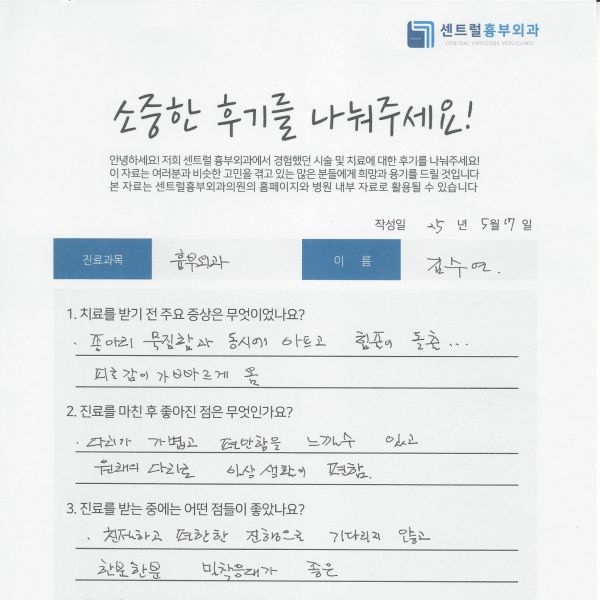 센트럴흉부외과
CENTRAL VARICOSE VEIN CLINIC
소중한 후기를 나눠주세요!
안녕하세요! 저희 센트럴 흉부외과에서 경험했던 시술 및 치료에 대한 후기를 나눠주세요!
이 자료는 여러분과 비슷한 고민을 겪고 있는 많은 분들에게 희망과 용기를 드릴 것입니다
본 자료는 센트럴흉부외과의원의 홈페이지와 병원 내부 자료로 활용될 수 있습니다
작성일 25 년 5월 17 일
진료과목 흉부외과 이 름 김수연.
1. 치료를 받기 전 주요 증상은 무엇이었나요?
. 종아리 묵직함과 동시에 아프고 힘줄이 돌출...
피로감이 가빠르게 옴
2. 진료를 마친 후 좋아진 점은 무엇인가요?
. 다리가 가볍고 편안함을 느낄수 있고
원래의 다리로 일상생활이 편함.
3. 진료를 받는 중에는 어떤 점들이 좋았나요?
. 친절하고 편안한 진행으로 기다리지 않고
한분한분 밀착응대가 좋은